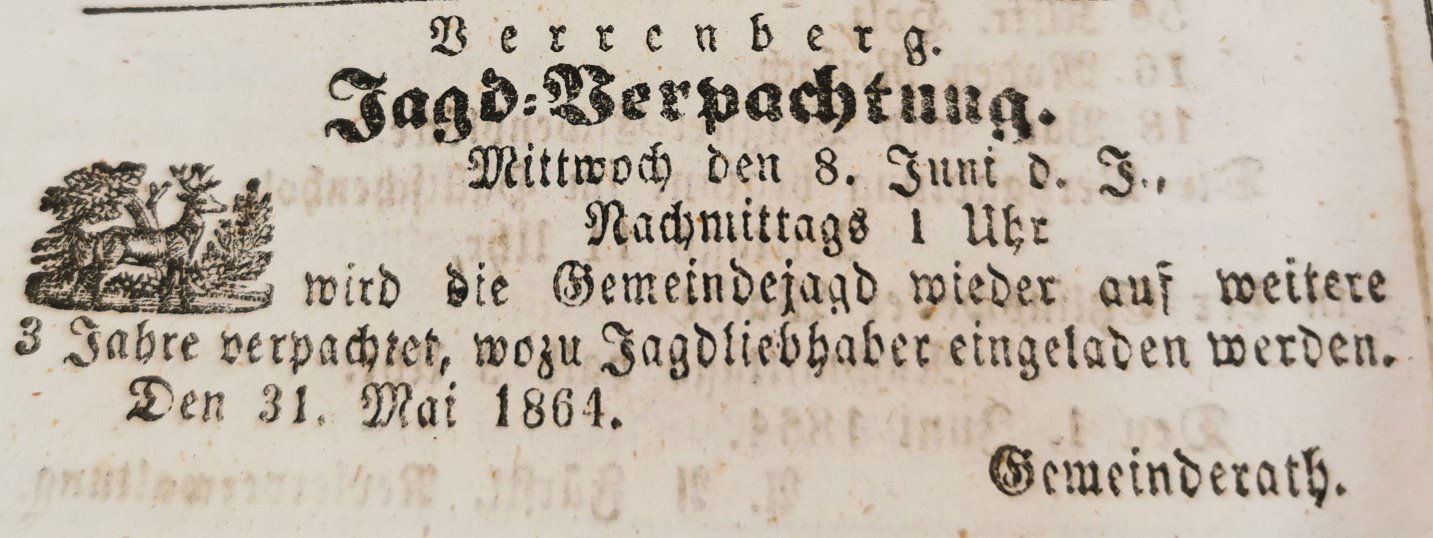 Verrenberg.
Jagd-Verpachtung.
Mittwoch den 8. Juni d. J.,
Nachmittags 1 Uhr
wird die Gemeindejagd wieder auf weitere
3 Jahre verpachtet, wozu Jagdliebhaber eingeladen werden.
Den 31. Mai 1864.
Gemeinderath.